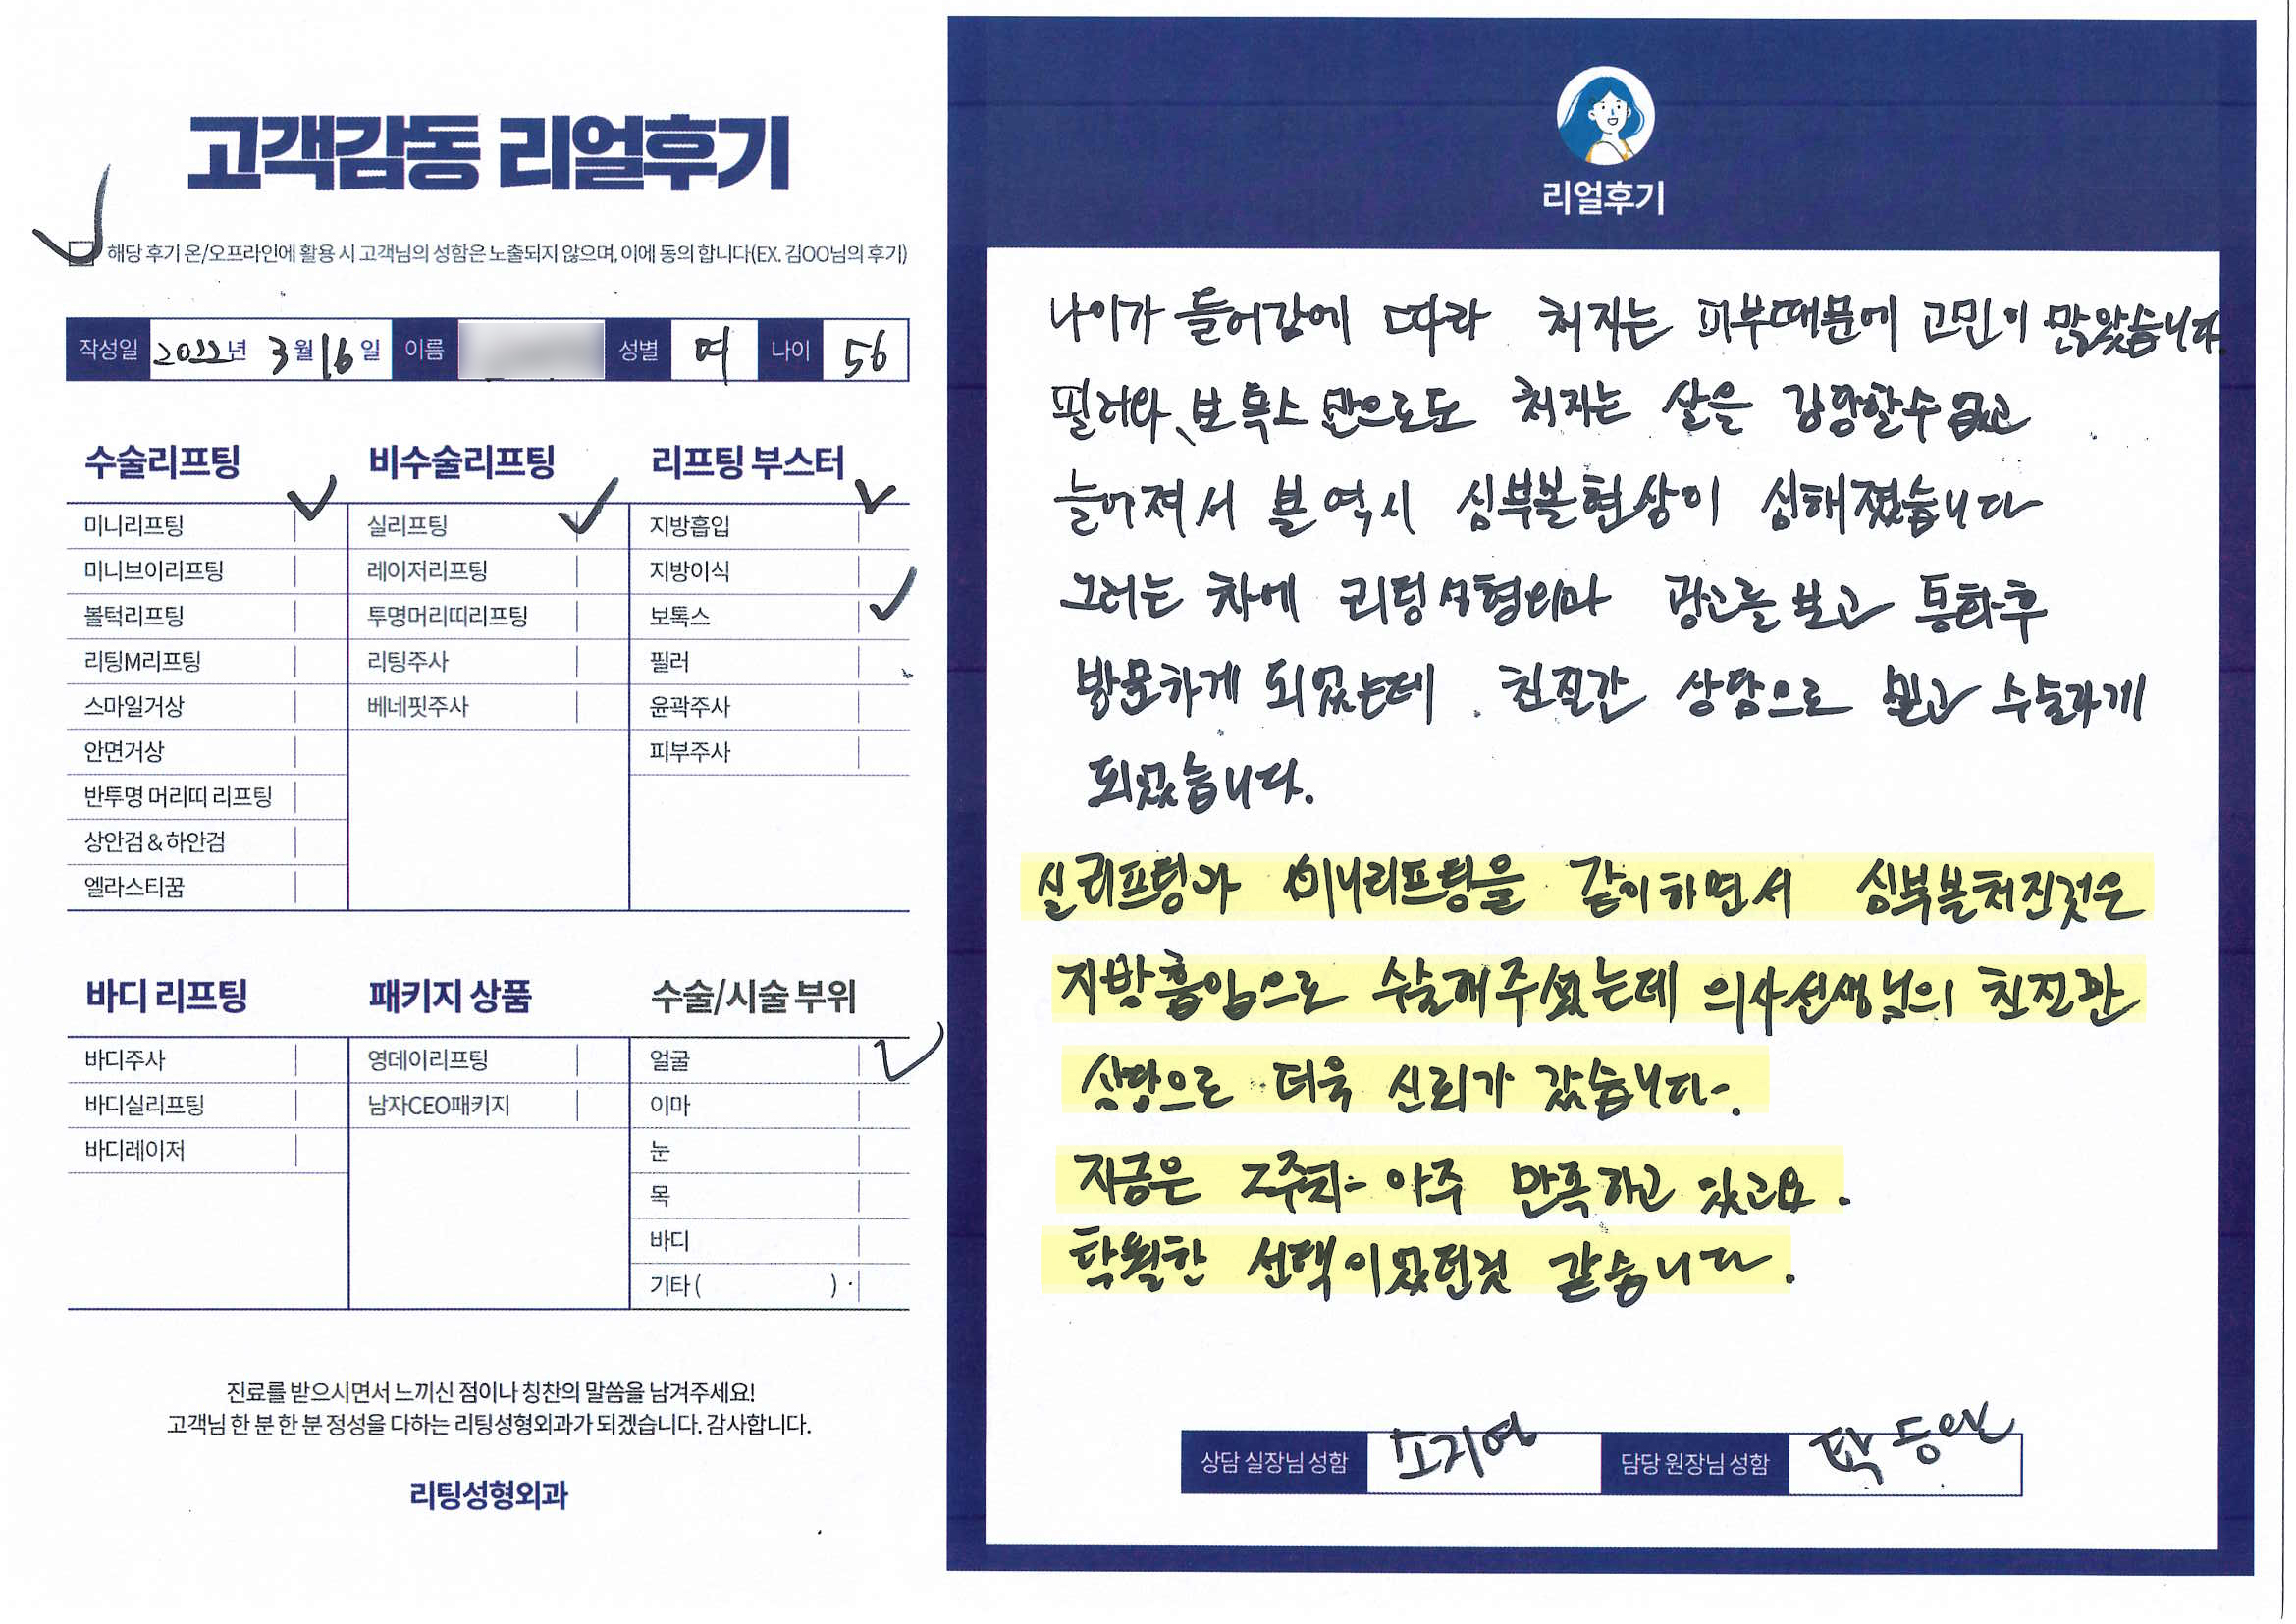 고객감동 리얼후기
해당 후기 온/오프라인에 활용 시 고객님의 성함은 노출되지 않으며, 이에 동의 합니다(EX. 김OO님의 후기)
작성일 2022년 3월 16일 이름 성별 여 나이 56
수술리프팅
미니리프팅
미니브이리프팅
볼턱리프팅
리팅M리프팅
스마일거상
안면거상
반투명 머리띠 리프팅
상안검 & 하안검
엘라스티꿈
비수술리프팅
실리프팅
레이저리프팅
투명머리띠리프팅
리팅주사
베네핏주사
리프팅 부스터
지방흡입
지방이식
보톡스
필러
윤곽주사
피부주사
바디 리프팅
바디주사
바디실리프팅
바디레이저
패키지 상품
영데이리프팅
남자CEO패키지
수술/시술 부위
얼굴
이마
눈
목
바디
기타 ( )
진료를 받으시면서 느끼신 점이나 칭찬의 말씀을 남겨주세요!
고객님 한 분 한 분 정성을 다하는 리팅성형외과가 되겠습니다. 감사합니다.
리팅성형외과
리얼후기
나이가 들어감에 따라 처지는 피부때문에 고민이 많았습니다
필러와, 보톡스 만으로도 처지는 살을 감당할수 없고
늘어져서 볼 역시 심부볼현상이 심해졌습니다
그러는 차에 리팅성형외과 광고를 보고 통화후
방문하게 되었는데 친절한 상담으로 믿고 수술하게
되었습니다.
실리프팅과 미니리프팅을 같이하면서 심부볼처진것은
지방흡입으로 수술해주셨는데 의사선생님의 친절한
상담으로 더욱 신뢰가 갔습니다.
지금은 2주차 아주 만족하고 있고요.
탁월한 선택이었던것 같습니다.
상담 실장님 성함 소지연 담당 원장님 성함